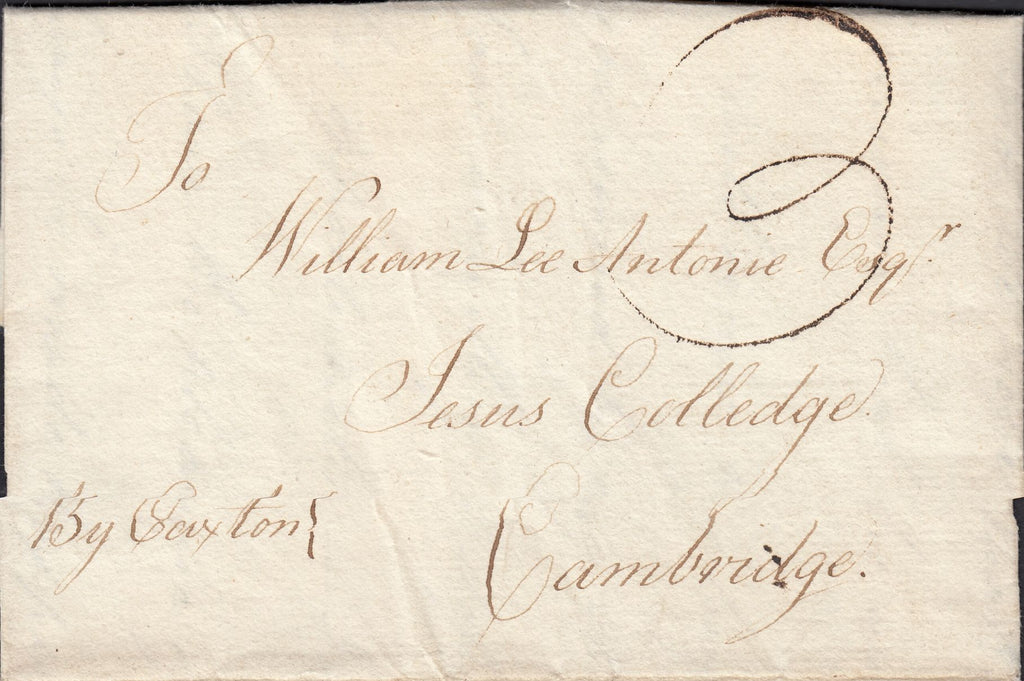 3
To
William Lee Antonie Esqr.
Jesus Colledge.
By Caxton
Cambridge.